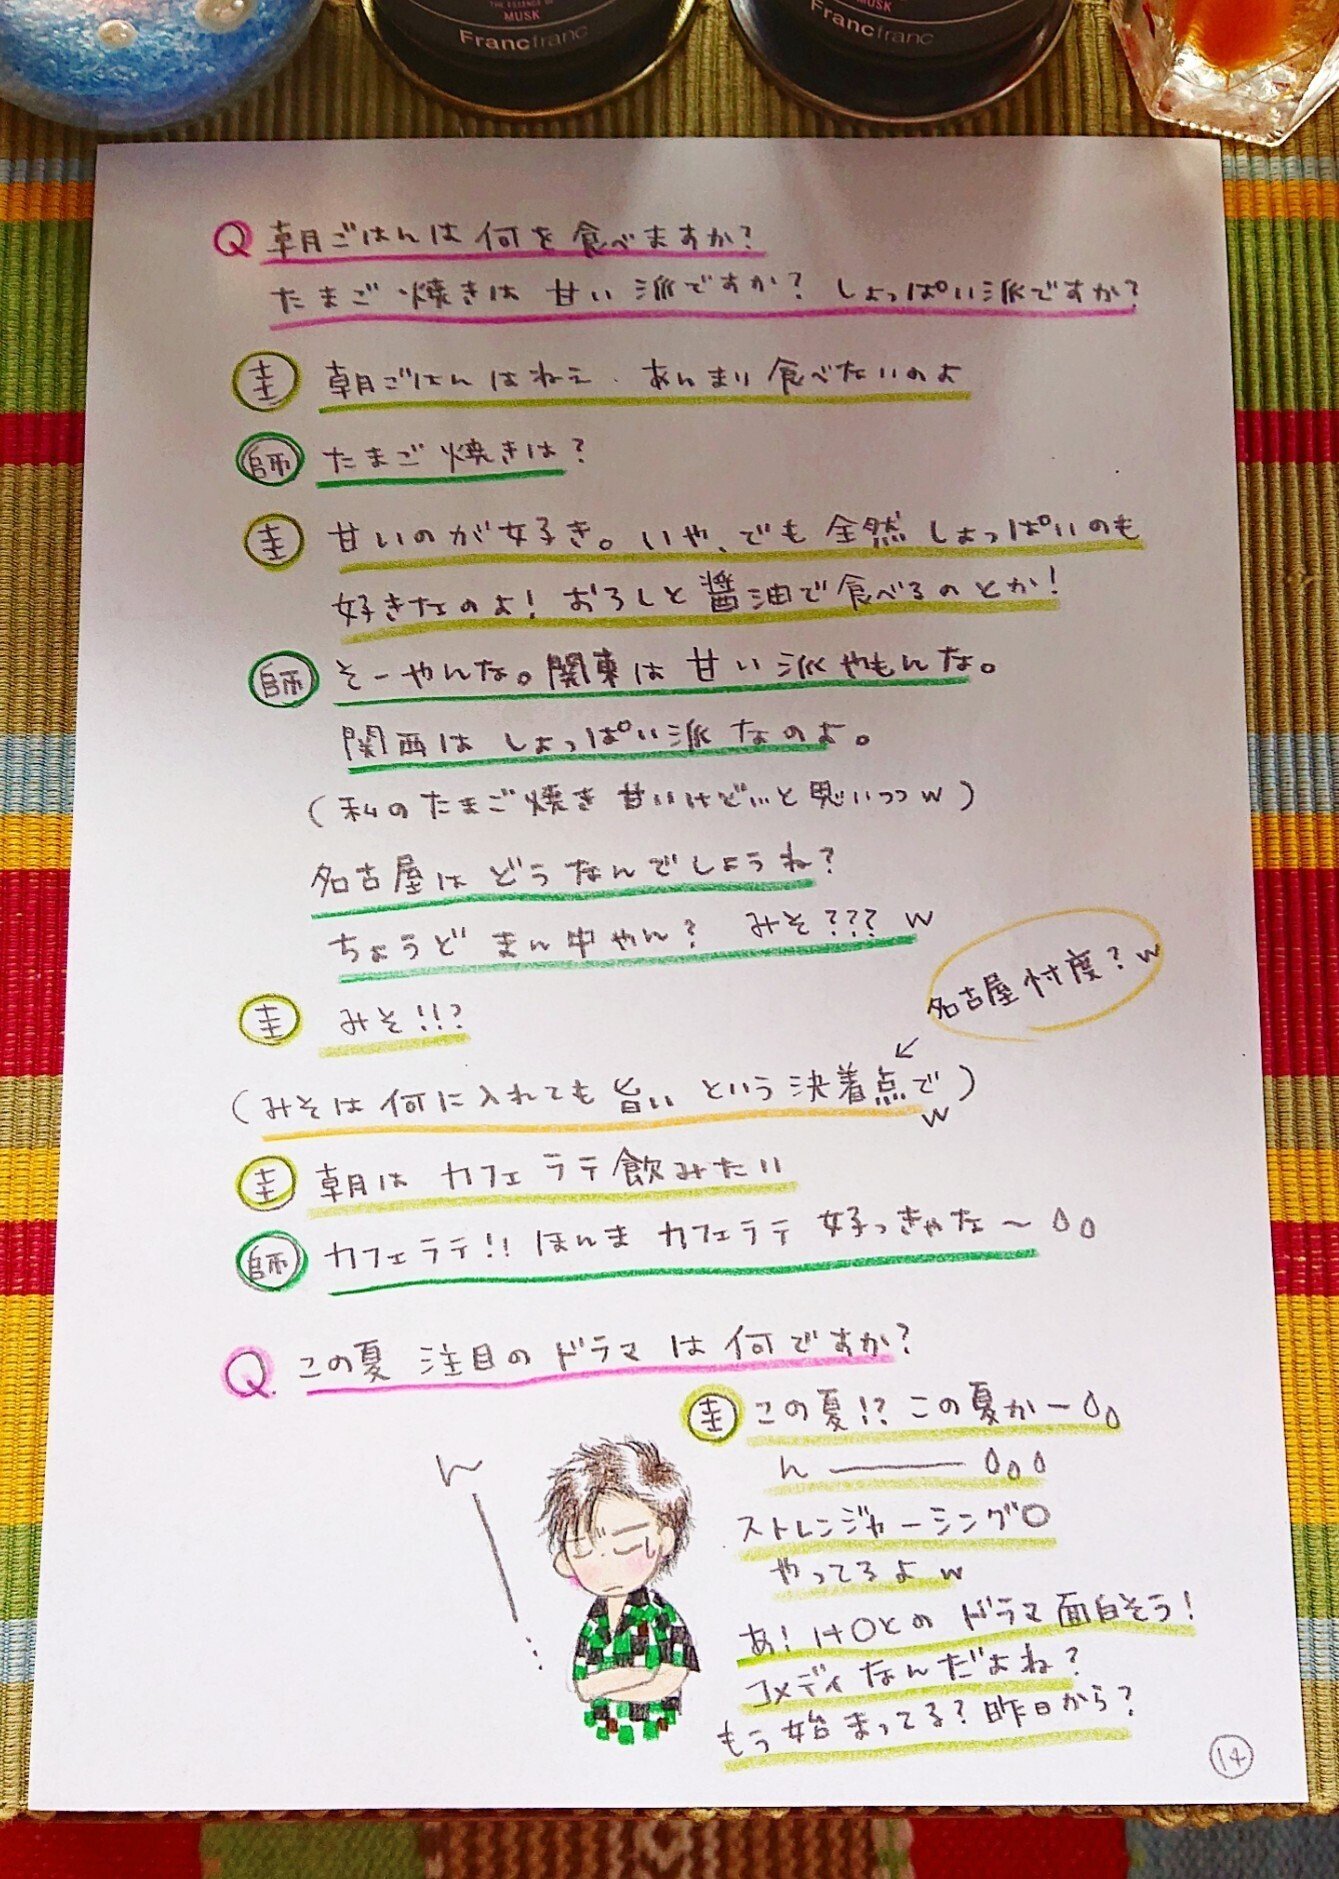 THE ESSENCE OF
MUSK
Francfranc
MUSK
Francfranc
Q 朝ごはんは何を食べますか?
たまご焼きは 甘い派ですか? しょっぱい派ですか?
圭 朝ごはんはねえ、あんまり食べないのよ
師 たまご焼きは?
圭 甘いのが好き。いや、でも全然しょっぱいのも
好きなのよ! おろしと醤油で食べるのとか!
師 そーやんな。関東は甘い派やもんな。
関西はしょっぱい派なのよ。
(私のたまご焼き甘いけど…と思いつつw)
名古屋はどうなんでしょうね?
ちょうどまん中やん? みそ??? w
圭 みそ!!?
名古屋忖度?w
(みそは何に入れても旨いという決着点で)
w
圭 朝はカフェラテ飲みたい
師 カフェラテ!! ほんまカフェラテ好っきゃな〜
Q. この夏 注目のドラマは何ですか?
圭 この夏!? この夏かー
ん———
ん
ストレンジャーシング〇
やってるよw
あ! 1+〇とのドラマ面白そう!
コメディなんだよね?
もう始まってる? 昨日から?
14